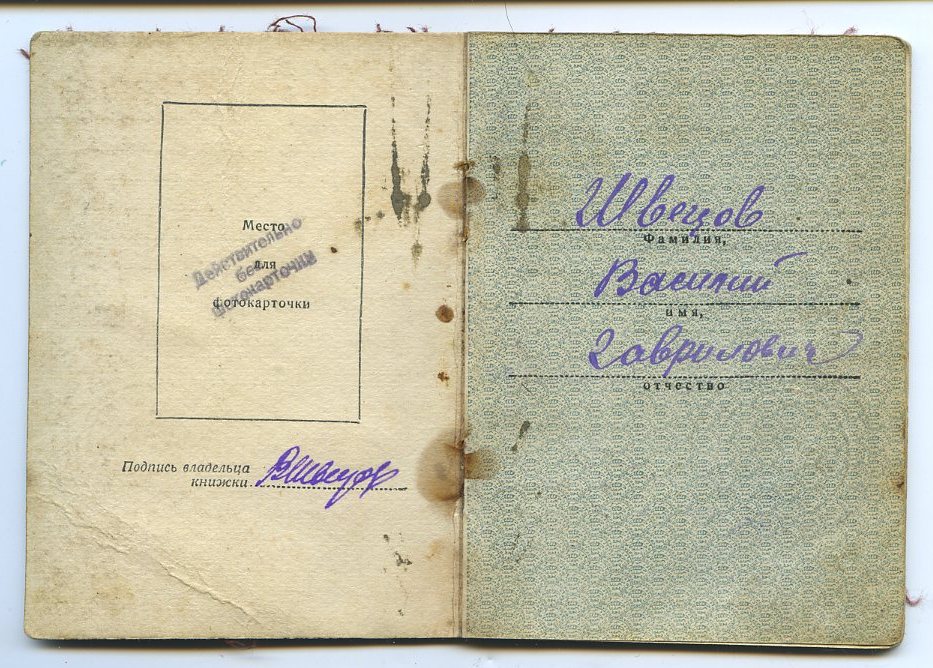 Место
для
фотокарточки
Действительно
без
фотокарточки
Подпись владельца
книжки
ВШвецов
Швецов
Фамилия,
Василий
имя,
Гаврилович
отчество